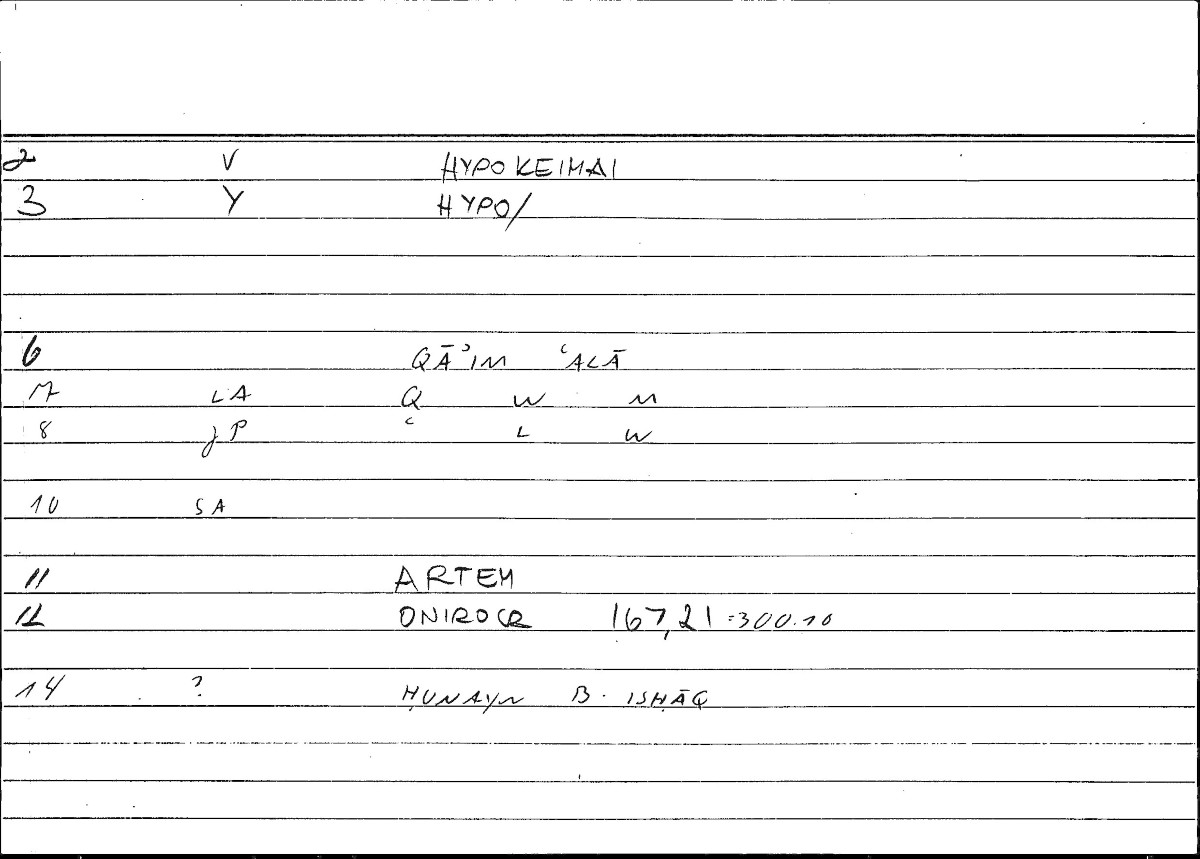 2 V HYPOKEIMAI
3 Y HYPO/
6 QĀʾIM ʿALĀ
7 LA Q W M
8 JP ʿ L W
10 SA
11 ARTEM
12 ONIROCR 167,21 =300.10
14 ? ḤUNAYN B. ISḤĀQ